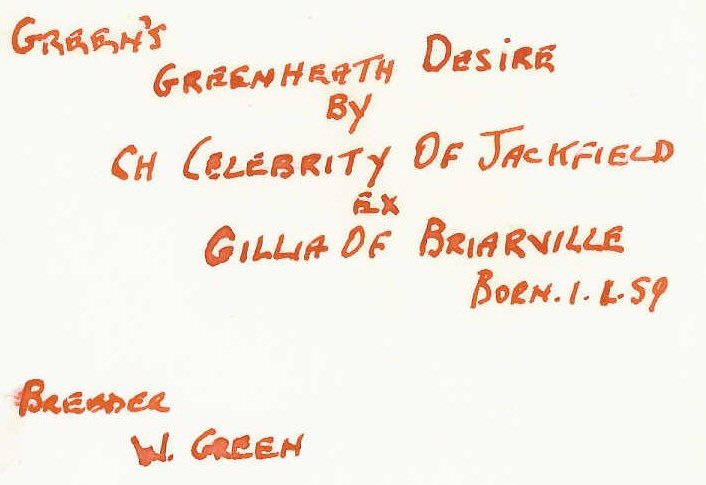 GREEN'S
GREENHEATH DESIRE
BY
CH CELEBRITY OF JACKFIELD
EX
GILLIA OF BRIARVILLE
BORN. 1. 2. 59
BREEDER
W. GREEN